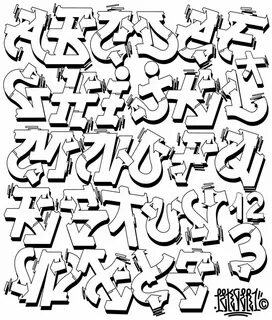 A B C D E F
G H I J K L
M N O P Q
R S T U V 1 2
W X Y Z 3
©